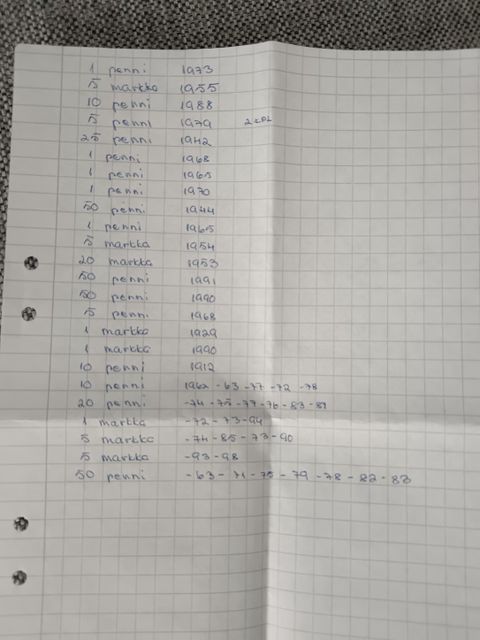 1 penni 1973
5 markka 1955
10 penni 1988
5 penni 1979 2 kpl
25 penni 1942
1 penni 1968
1 penni 1965
1 penni 1970
50 penni 1944
1 penni 1965
5 markka 1954
20 markka 1953
50 penni 1991
50 penni 1990
5 penni 1968
1 markka 1929
1 markka 1990
10 penni 1912
10 penni 1962 - 63 - 77 - 72 - 78
20 penni -74 - 75 - 77 - 76 - 83 - 89
1 markka -72 - 73 - 94
5 markka -74 - 85 - 73 - 90
5 markka -93 - 98
50 penni - 63 - 71 - 75 - 79 - 78 - 82 - 83